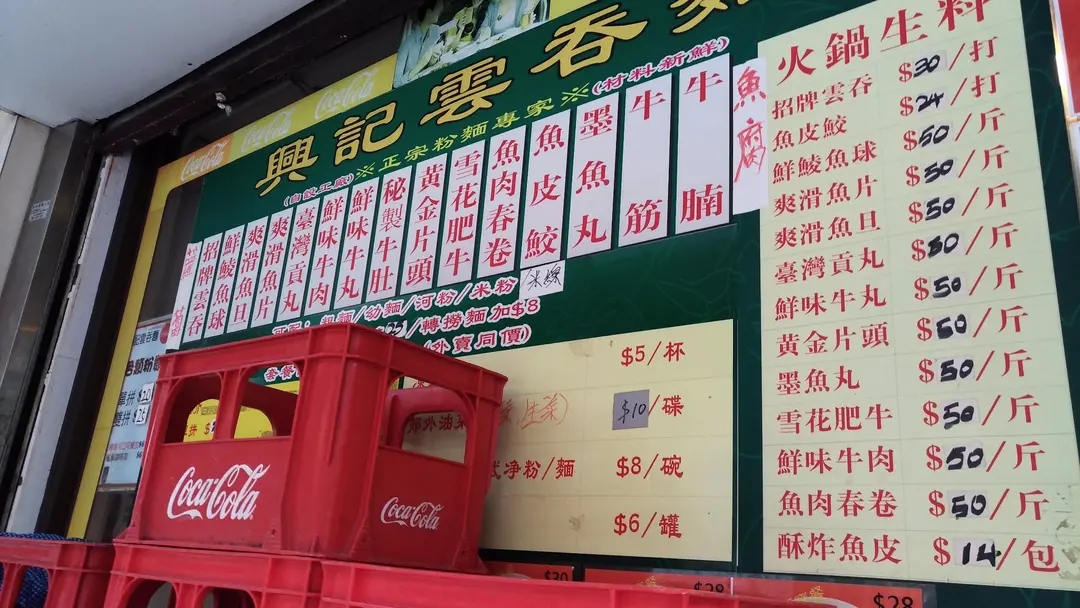 Coca-Cola
Coca-Cola
Coca-Cola
興記雲吞
※正宗粉麵專家※
(自設工廠)
(材料新鮮)
招牌雲吞
鮮鯪魚球
爽滑魚旦
爽滑魚片
臺灣貢丸
鮮味牛肉
鮮味牛丸
秘製牛肚
黃金片頭
雪花肥牛
魚肉春卷
魚皮餃
墨魚丸
牛筋
牛腩
魚腐
幼麵/河粉/米粉/米線
轉撈麵加$8
(外賣同價)
$5/杯
郊外油菜
生菜)
$10/碟
净粉/麵
$8/碗
$6/罐
火鍋生料
招牌雲吞 $30/打
魚皮餃 $24/打
鮮鯪魚球 $50/斤
爽滑魚片 $50/斤
爽滑魚旦 $50/斤
臺灣貢丸 $50/斤
鮮味牛丸 $50/斤
黃金片頭 $50/斤
墨魚丸 $50/斤
雪花肥牛 $50/斤
鮮味牛肉 $50/斤
魚肉春卷 $50/斤
酥炸魚皮 $14/包
Coca-Cola
Coca-Cola
$30
$28
$28